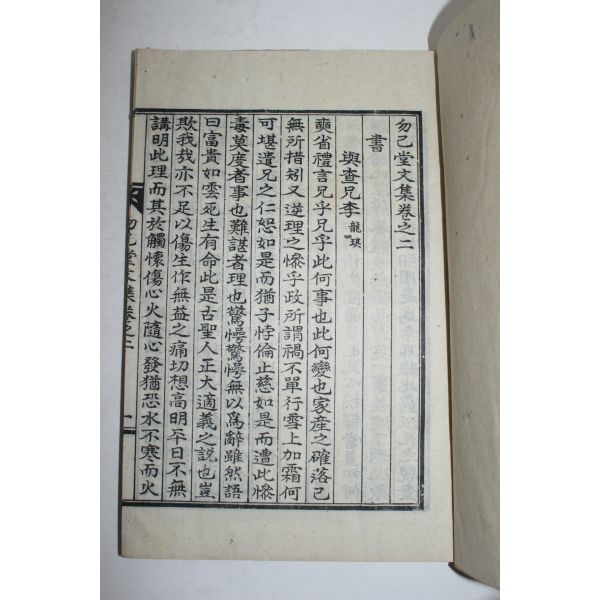 勿己堂文集卷之二
書
與査兄李龍琪
奭省禮言兄乎兄乎此何事也此何變也家産之確落已
無所措矧又逆理之慘乎政所謂禍不單行雪上加霜何
可堪遣兄之仁恕如是而猶子悖倫止慈如是而遭此慘
毒莫度者事也難諶者理也驚愕驚愕無以爲辭雖然語
曰富貴如雲死生有命此是古聖人正大適義之說也豈
欺我哉亦不足以傷生作無益之痛切想高明平日不無
講明此理而其於觸懷傷心火隨心發猶恐水不寒而火
勿己堂文集卷之二
一